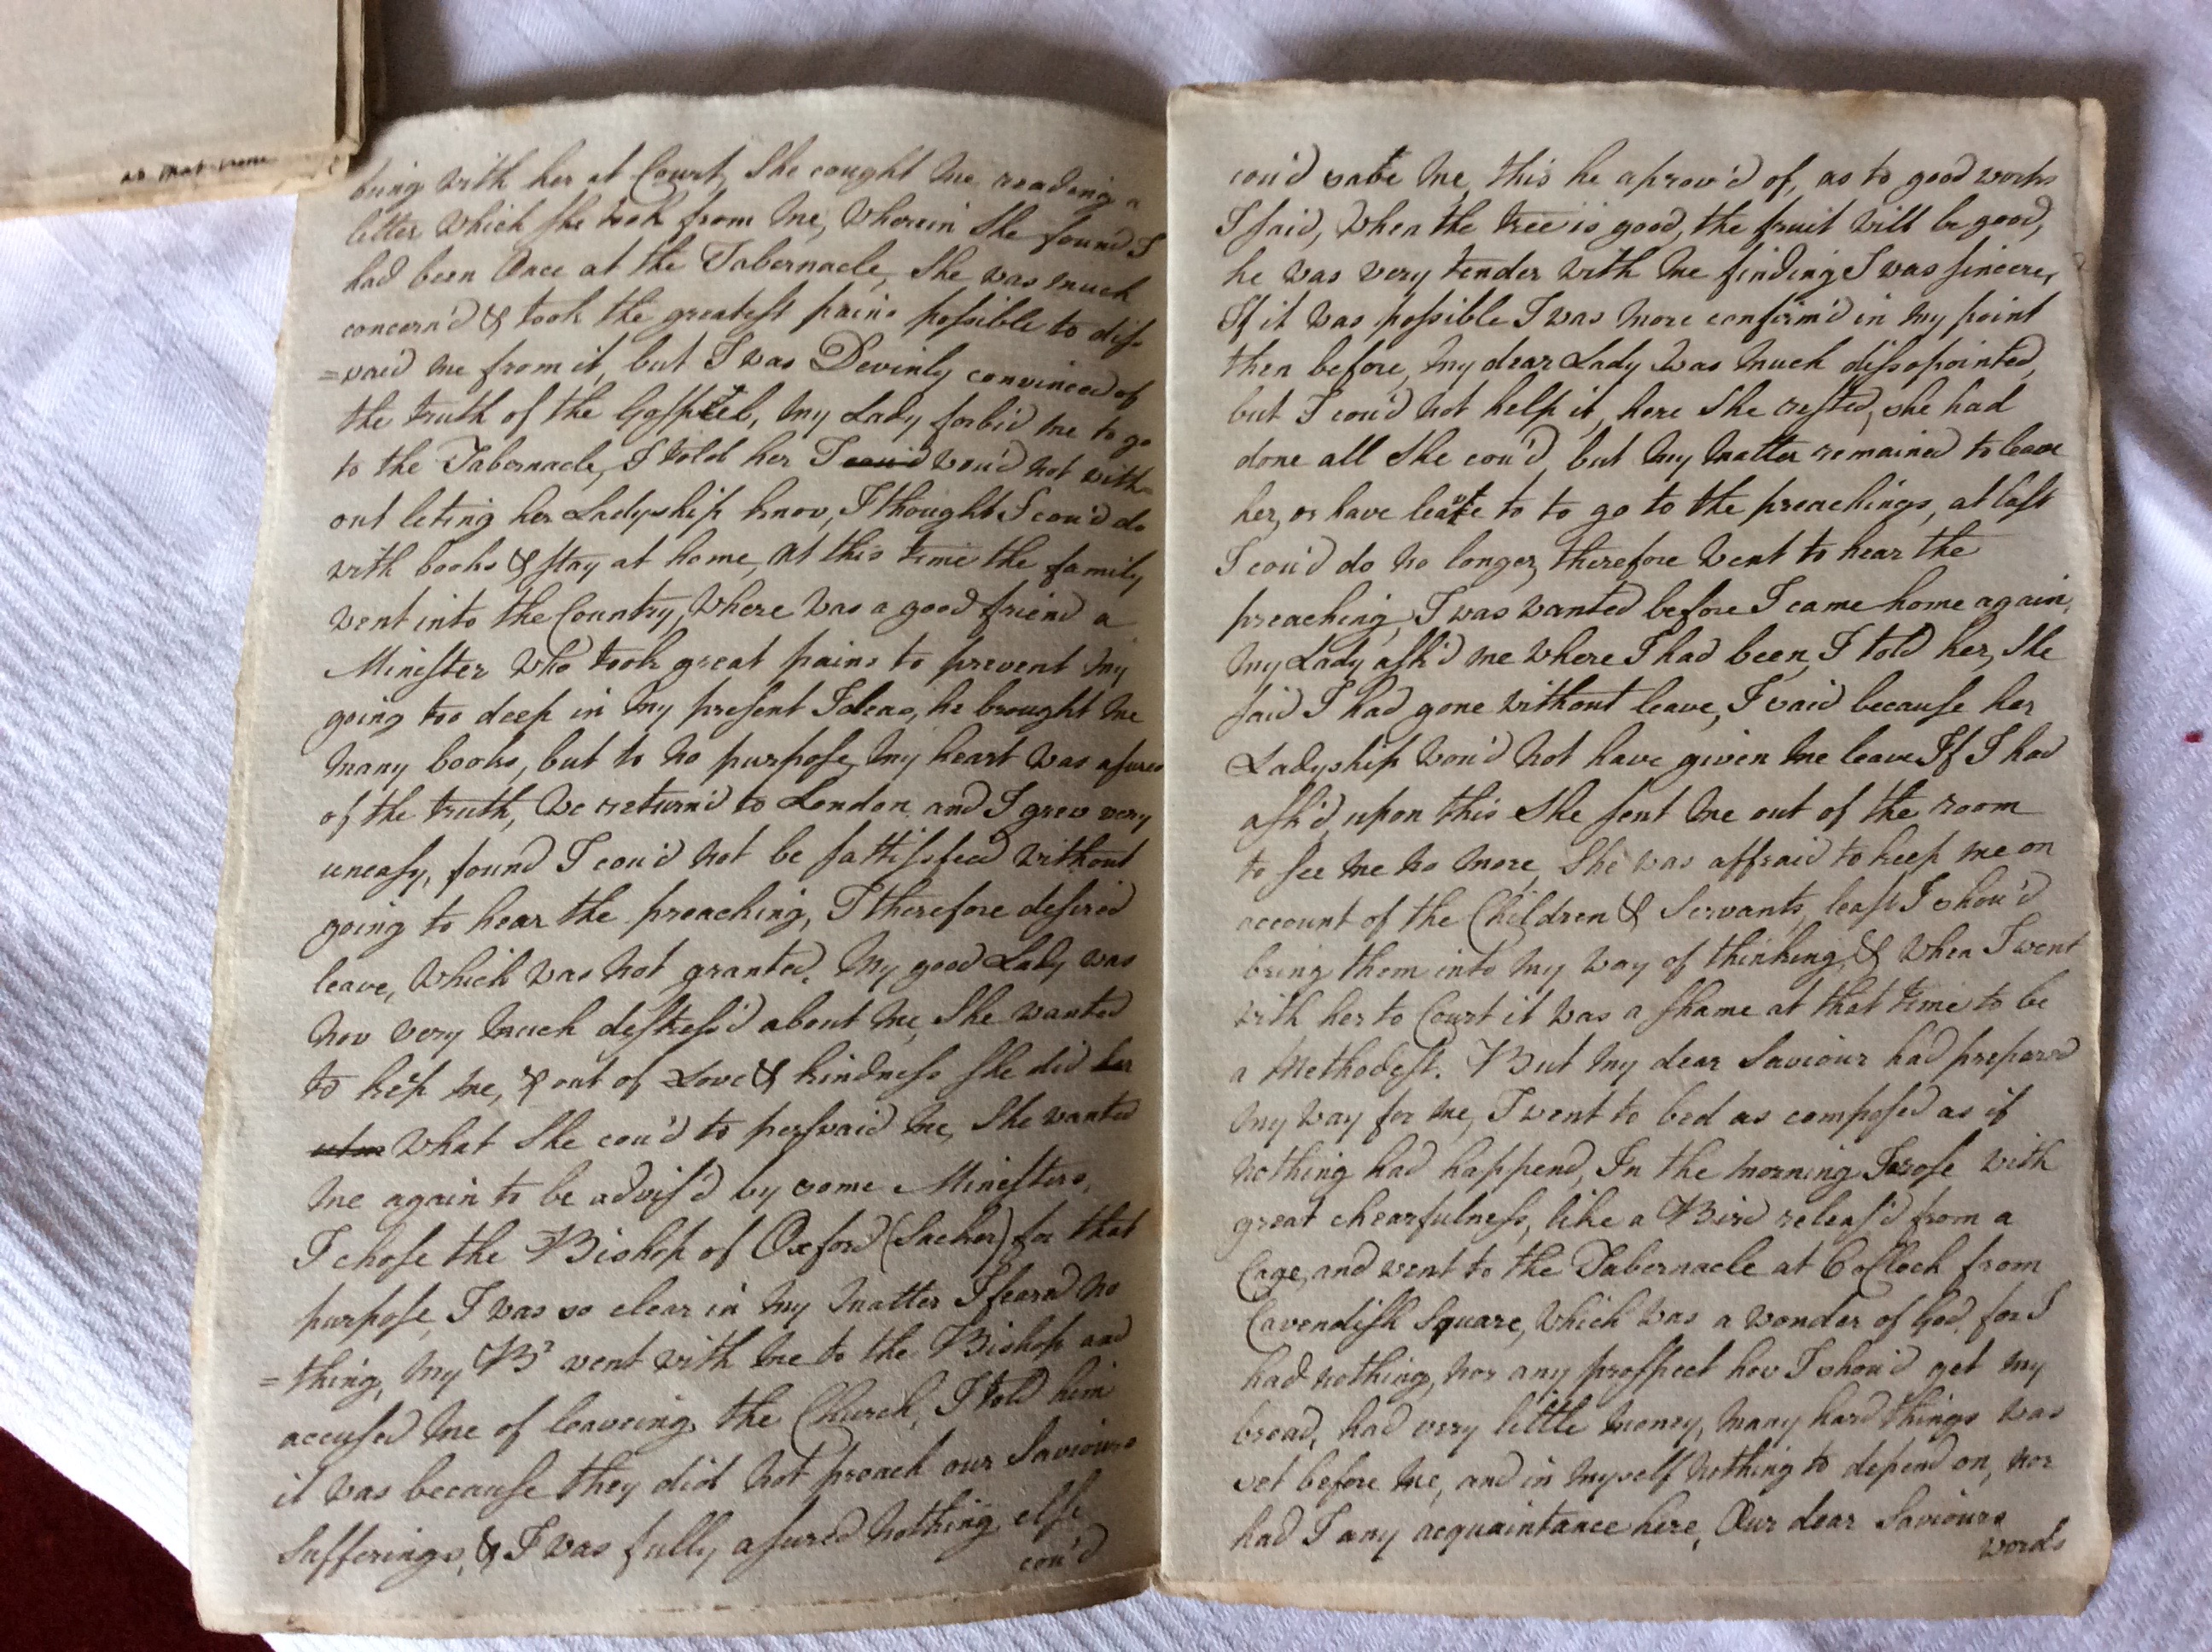 as that
being with her at Court, She caught me reading a
letter which she took from me, wherein She found I
had been Once at the Tabernacle, She was much
concern'd & took the greatest pains possible to dis-
=waid me from it, but I was Devinly convinced of
the truth of the Gosple, my Lady forbid me to go
to the Tabernacle, I told her I cou'd wou'd not with-
out leting her Ladyship know, I thought I cou'd do
with books & stay at home, at this time the family
went into the Country, where was a good friend a
Minister who took great pains to prevent my
going too deep in my present Ideas, he brought me
many books, but to no purpose, my heart was asured
of the truth, We return'd to London, and I grew very
uneasy, found I cou'd not be sattissfied without
going to hear the preaching, I therefore desired
leave, which was not granted. My good Lady was
now very much destress'd about me, She wanted
to keep me, & out of Love & kindness she did her
utm what She cou'd to perswaid me, She wanted
me again to be advis'd by some Ministers,
I chose the Bishop of Oxford (Secker) for that
purpose, I was so clear in my matter I feard no
=thing, My Br went with me to the Bishop and
accused me of leaveing the Church, I told him
it was because they did not preach our Saviours
Sufferings, & I was fully asured nothing else
cou'd
cou'd save me, this he aprov'd of, as to good works
I said, when the tree is good, the fruit will be good,
he was very tender with me finding I was sincere,
If it was possible I was more confirm'd in my point
then before, my dear Lady was much dissopointed,
but I cou'd not help it, here She rested, she had
done all She cou'd, but my matter remained to leave
her, or have leave to to go to the preachings, at last
I cou'd do no longer, therefore went to hear the
preaching, I was wanted before I came home again,
my Lady ask'd me where I had been, I told her, She
said I had gone without leave, I said because her
Ladyship wou'd not have given me leave If I had
ask'd, upon this She sent me out of the room
to see me no more, She was affraid to keep me on
account of the Children & Servants, least I shou'd
bring them into my way of thinking, & when I went
with her to Court it was a shame at that time to be
a Methodest. But my dear Saviour had prepared
my way for me, I went to bed as composed as if
nothing had happend, In the morning I rose with
great chearfulness, like a Bird releas'd from a
Cage, and went to the Tabernacle at 6 oClock from
Cavendish Square, which was a wonder of God, for I
had nothing, nor any prosspect how I shou'd get my
bread, had very little money, many hard things was
set before me, and in myself nothing to depend on, nor
had I any acquaintance here, Our dear Saviours
words